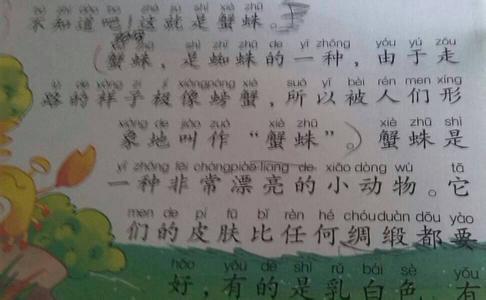 bù zhī dào ba zhè jiù shì xiè zhū
不知道吧！这就是蟹蛛。
zhū shì zhī zhū de yì zhǒng yóu yú zǒu
（蟹蛛，是蜘蛛的一种，由于走
lù de yàng zi jí xiàngpángxiè suǒ yǐ bèi rén men xíng
路的样子极像螃蟹，所以被人们形
xiàng de jiào zuò xiè zhū xiè zhū shì
象地叫作“蟹蛛”。）蟹蛛是
yì zhǒng fēi chángpiào liang de xiǎo dòng wù tā
一种非常漂亮的小动物。它
men de pí fū bǐ rèn hé chóuduàn dōu yào
们的皮肤比任何绸缎都要
hǎo yǒu de shì rǔ bái sè yǒu
好，有的是乳白色，有